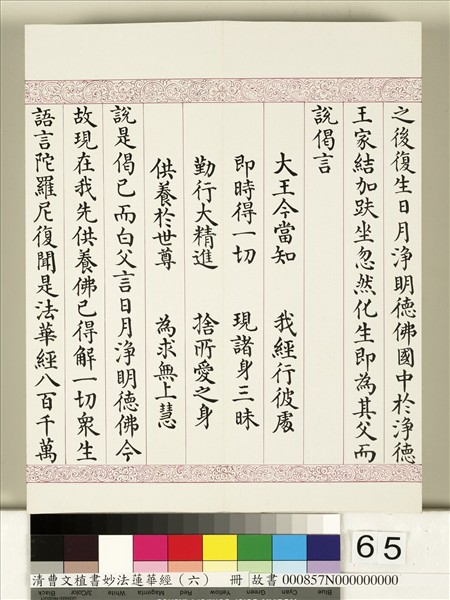 之後復生日月淨明德佛國中於淨德
王家結加趺坐忽然化生即為其父而
說偈言
大王今當知 我經行彼處
即時得一切 現諸身三昧
勤行大精進 捨所愛之身
供養於世尊 為求無上慧
說是偈已而白父言日月淨明德佛今
故現在我先供養佛已得解一切眾生
語言陀羅尼復聞是法華經八百千萬
65
清曹文植書妙法蓮華經（六） 冊 故書 000857N000000000
Black 3/Color White Magenta Red Yellow Green Cyan Blue